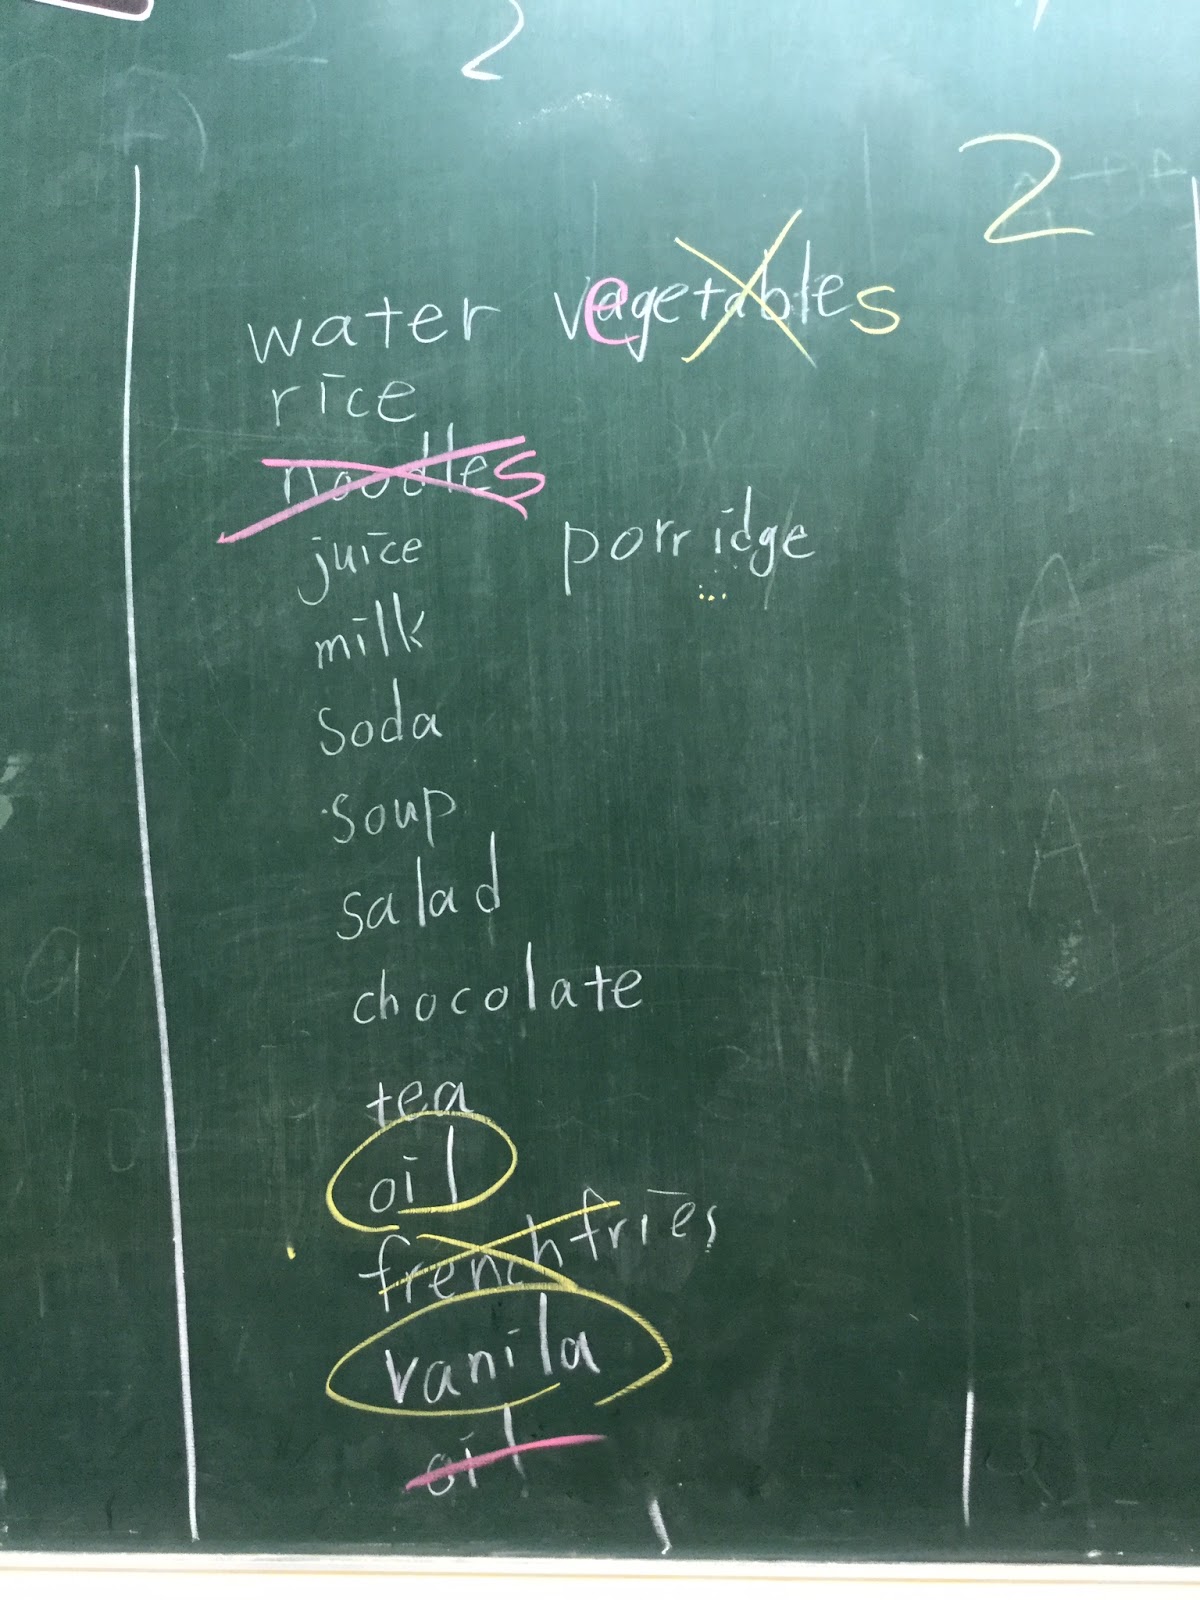 2
2
water vegetables
rice
noodles
juice porridge
milk
soda
soup
salad
chocolate
tea
oil
french fries
vanila
oil